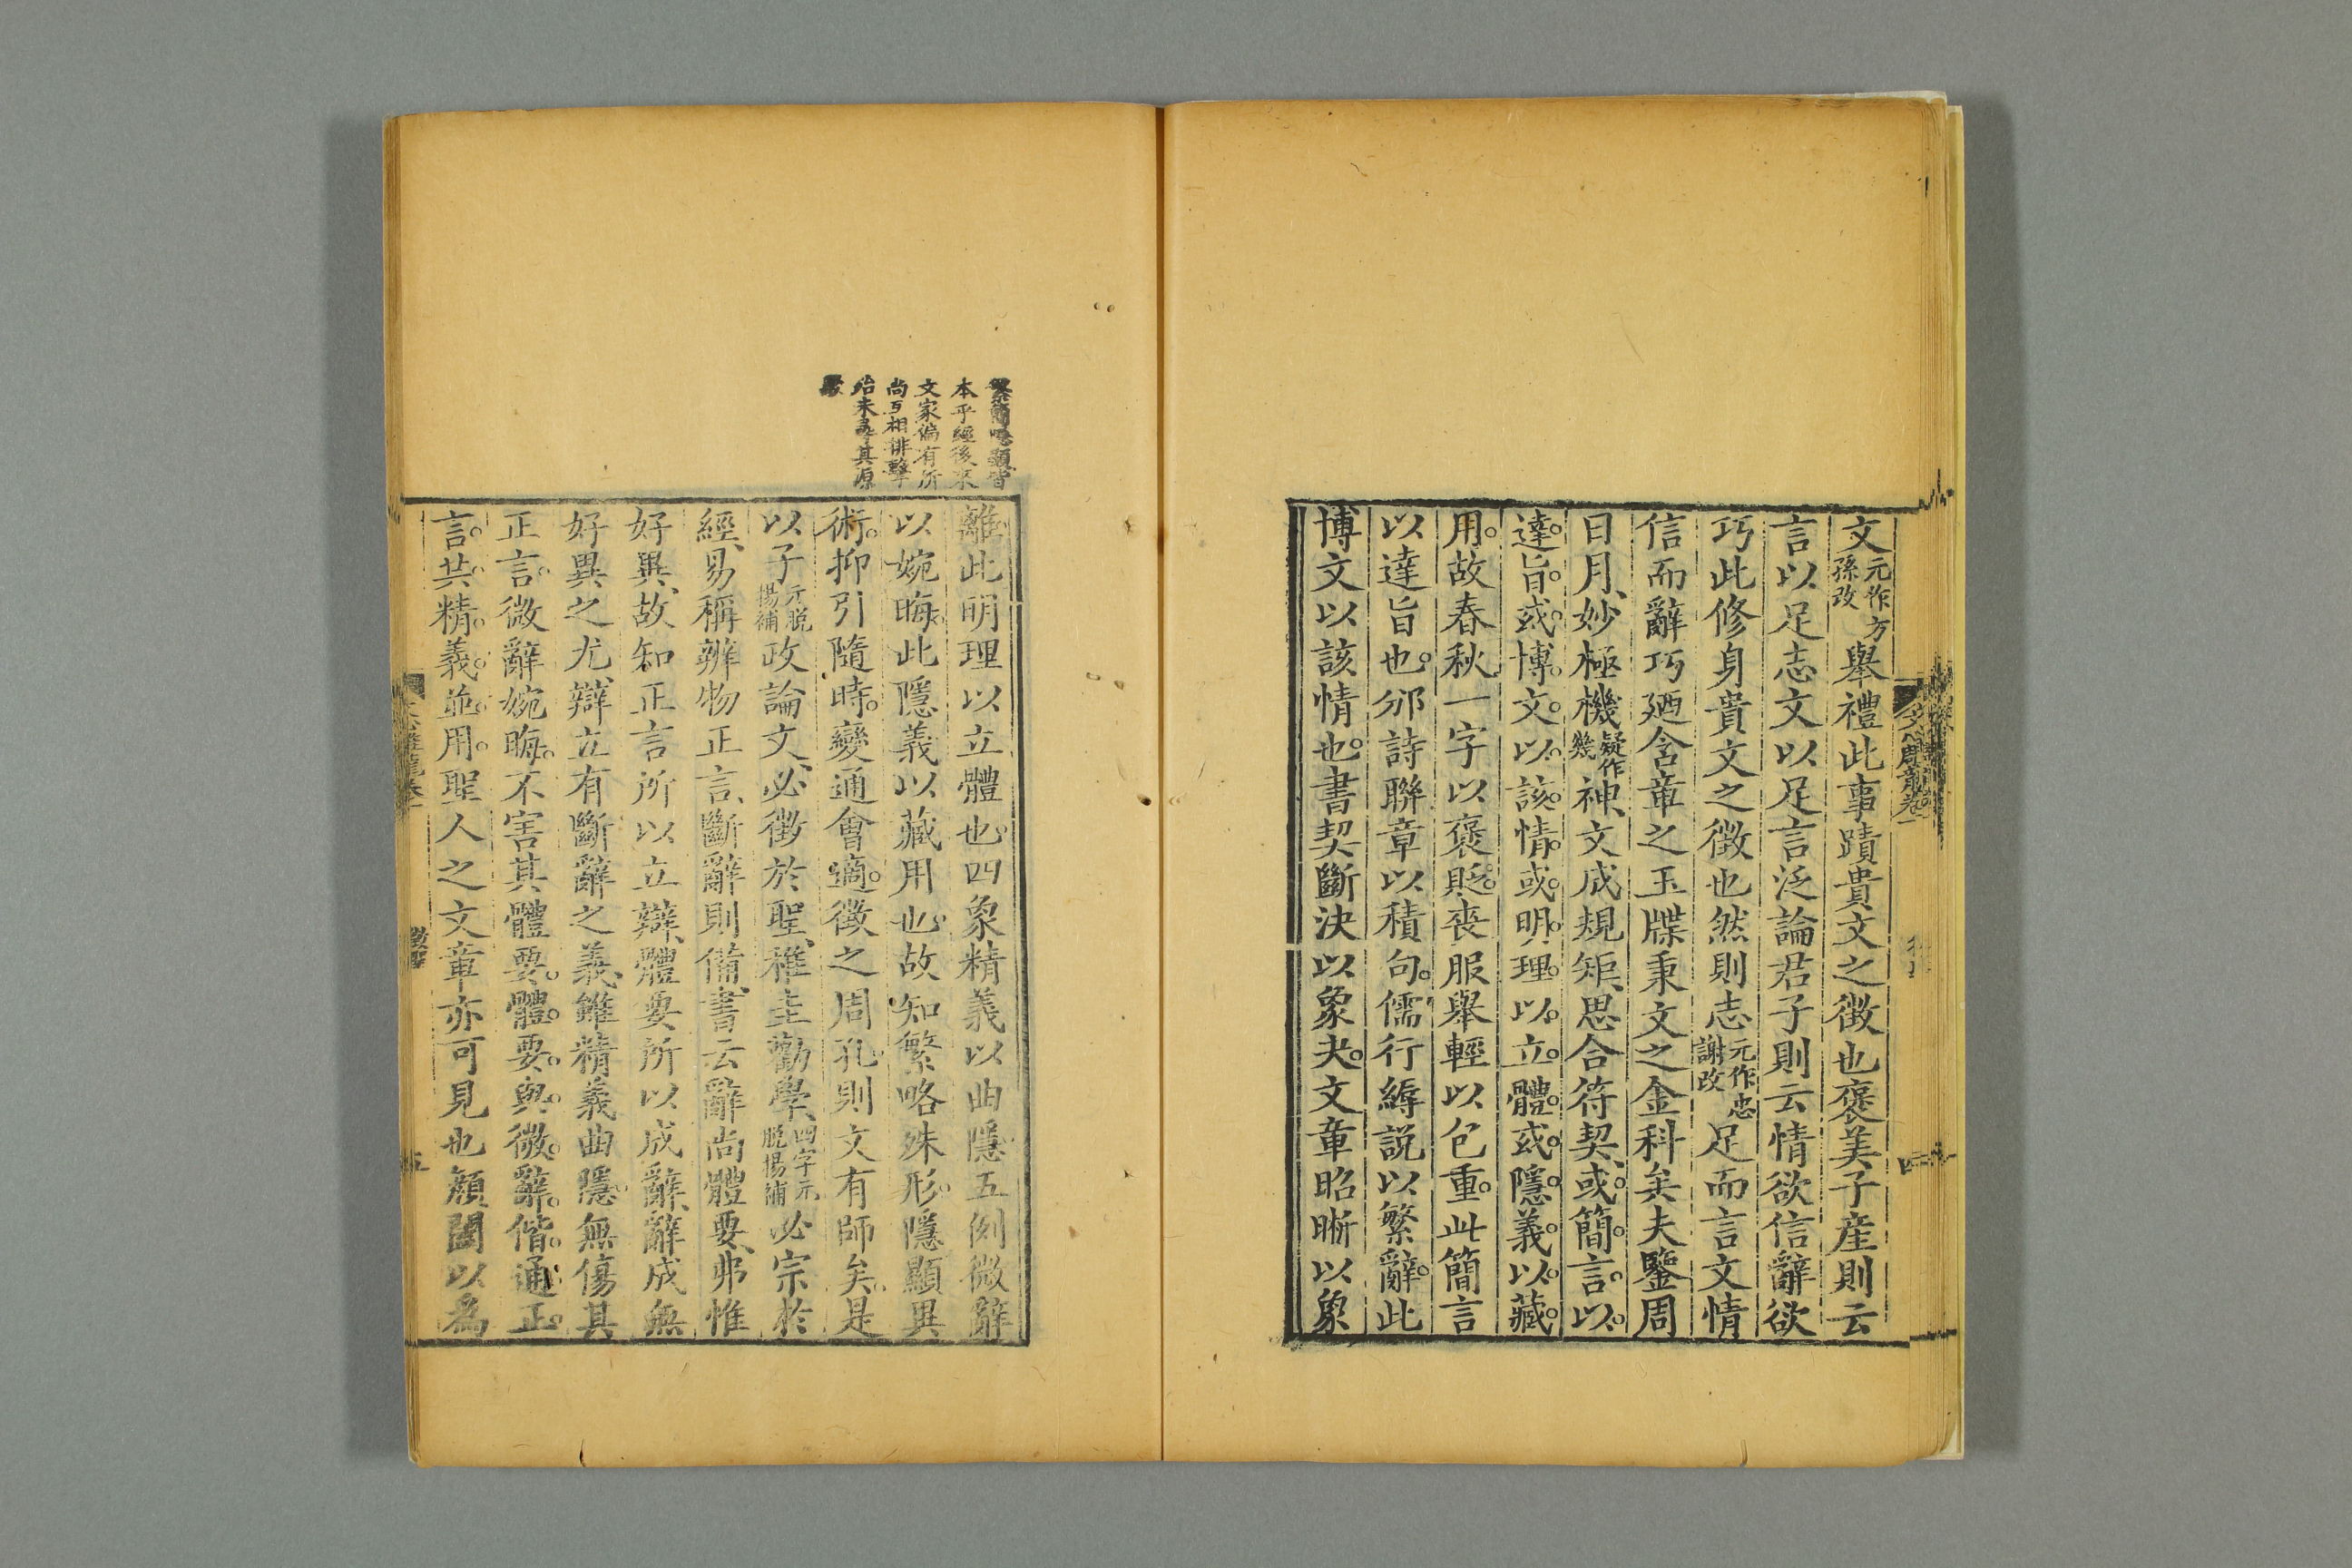 文元作方孫改舉禮此事蹟貴文之徵也褒美子産則云
言以足志文以足言泛論君子則云情欲信辭欲
巧此修身貴文之徵也然則志元作忠謝改足而言文情
信而辭巧廼含章之玉牒秉文之金科矣夫鑒周
日月、妙極機疑作幾神、文成規矩、思合符契、或簡言以
達旨。或博文以該情。或明理以立體。或隱義以藏
用。故春秋一字以褒貶。喪服舉輕以包重。此簡言
以達旨也。邠詩聯章以積句。儒行縟説以繁辭。此
博文以該情也。書契斷決以象夬。文章昭晰以象
文心雕龍卷一
四
繁簡隱顯皆
本乎經後來
文家偏有所
尚互相排擊
殆未尋其源
離。此明理以立體也。四象精義以曲隱。五例微辭
以婉晦。此隱義以藏用也。故知繁略殊形。隱顯異
術。抑引隨時。變通會適。徵之周孔。則文有師矣。是
以子元脱楊補政論文、必徵於聖、稚圭勸學、四字元脱楊補必宗於
經、易稱辨物正言、斷辭則備、書云辭尚體要、弗惟
好異、故知正言所以立辯、體要所以成辭、辭成無
好異之尤、辯立有斷辭之義、雖精義曲隱。無傷其
正言。微辭婉晦。不害其體要。體要與微辭偕通。正
言共精義並用。聖人之文章亦可見也顔闔以爲
文心雕龍卷一
徵聖
五